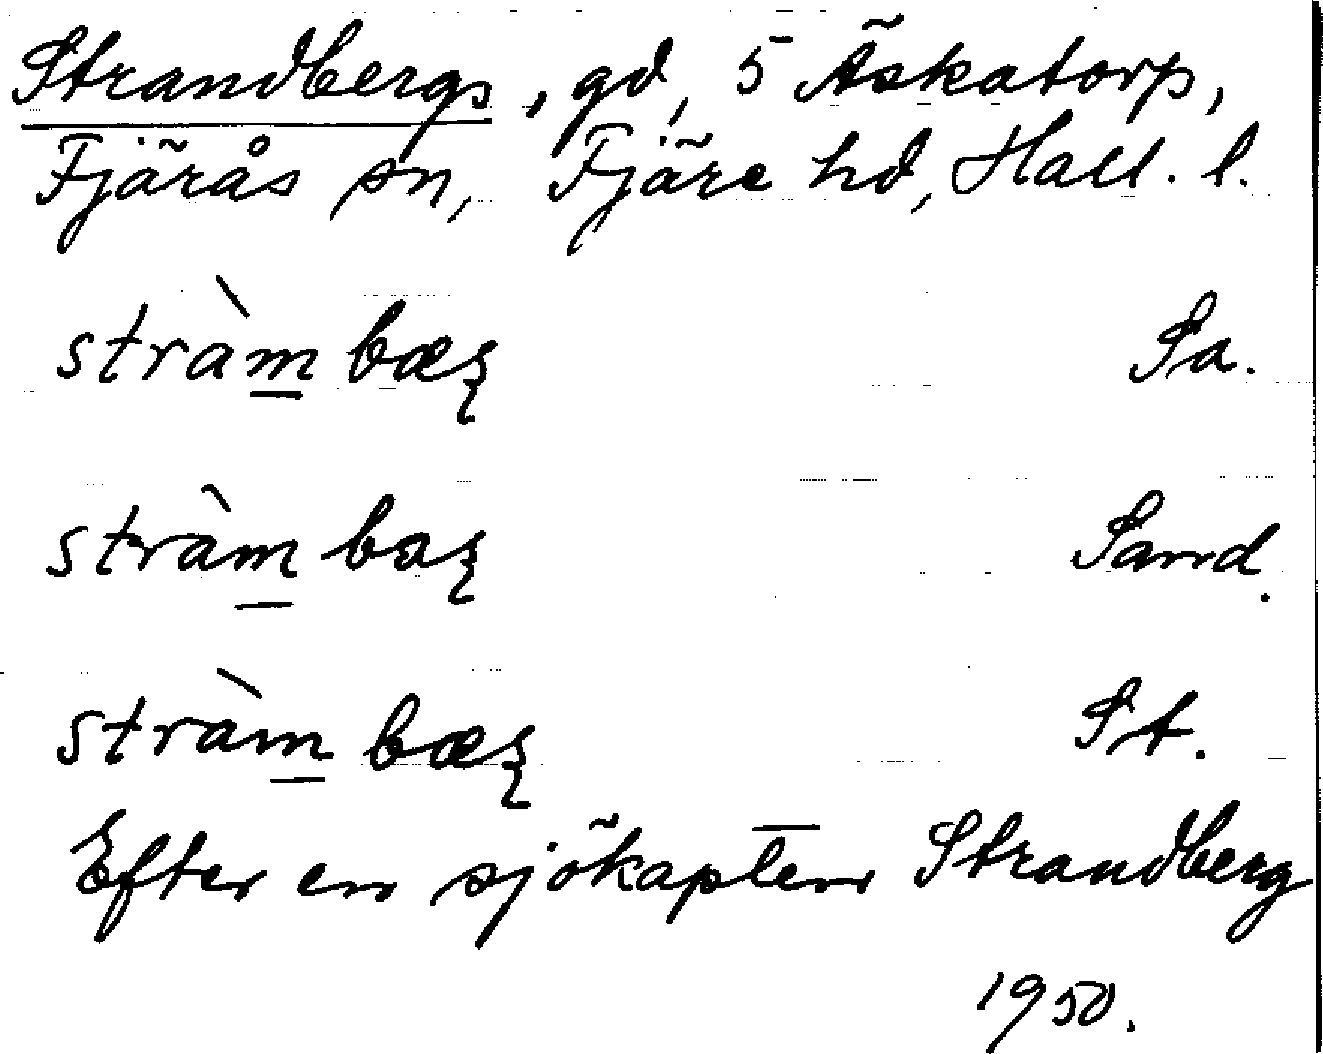 Strandbergs, gd, 5 Äskatorp,
Fjärås sn, Fjäre hd, Hall. l.
stràm bæʂ Sa.
stràm baʂ Sand.
stràm bæʂ St.
Efter en sjökapten Strandberg
1950.